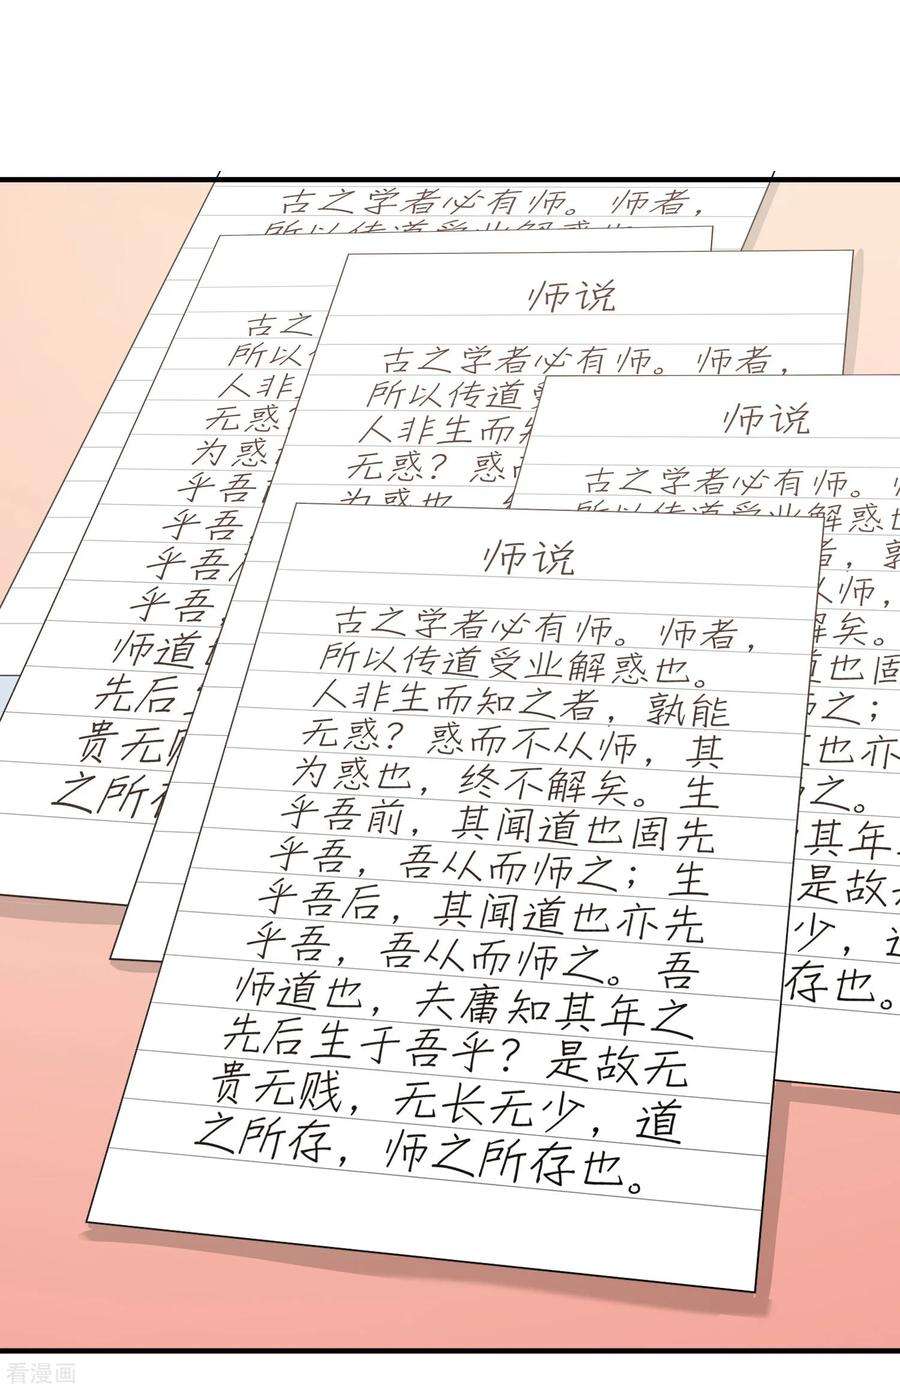 古之学者必有师。师者，
所以传道受业解惑也
古之
所以
人非
无惑
为惑
乎吾
乎吾
乎吾
乎吾
师道
先后
贵无贱
之所存
师说
古之学者必有师。师者，
所以传道受
人非生而知
无惑？惑而
为惑也
师说
古之学者必有师。
所以传道受业解惑也
者，孰
从师，
解矣。
道也固
师之；
道也亦
之。
其年
是故无
少，道
存也。
师说
古之学者必有师。师者，
所以传道受业解惑也。
人非生而知之者，孰能
无惑？惑而不从师，其
为惑也，终不解矣。生
乎吾前，其闻道也固先
乎吾，吾从而师之；生
乎吾后，其闻道也亦先
乎吾，吾从而师之。吾
师道也，夫庸知其年之
先后生于吾乎？是故无
贵无贱，无长无少，道
之所存，师之所存也。
看漫画